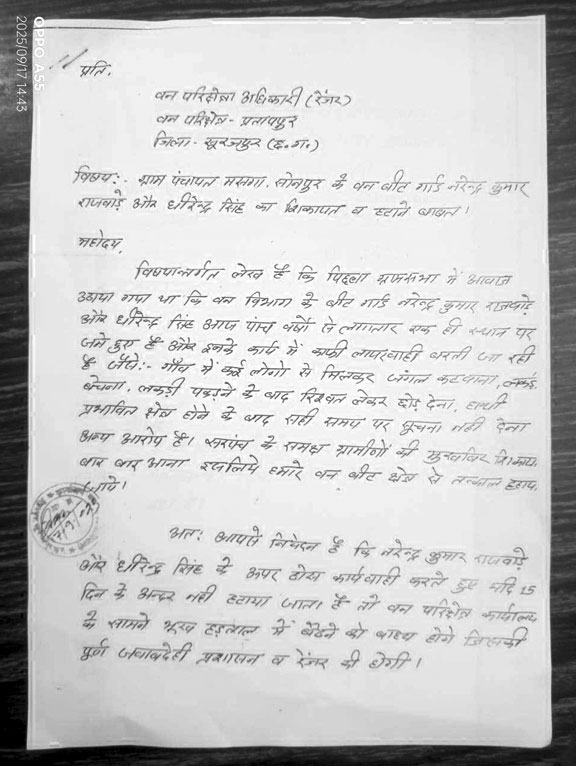 OPPO A55
2025/09/17 14:43
प्रति,
वन परिक्षेत्र अधिकारी (रेंजर)
वन परिक्षेत्र - प्रतापपुर
जिला - सूरजपुर (छ.ग.)
विषय:- ग्राम पंचायत मसगा, सोनपुर के वन बीट गार्ड नरेन्द्र कुमार
राजवाड़े और धीरेन्द्र सिंह का शिकायत व हटाने बाबत।
महोदय,
विषयान्तर्गत लेख है कि पिछला ग्रामसभा में आवाज
उठाया गया था कि वन विभाग के बीट गार्ड नरेन्द्र कुमार राजवाड़े
और धीरेन्द्र सिंह आज पांच वर्षो से लगातार एक ही स्थान पर
जमे हुए है और इनके कार्य में काफी लापरवाही बरती जा रही
है जैसे:- गाँव में कई लोगो से मिलकर जंगल कटवाना, लकड़ी
बेचना, लकड़ी पकड़ने के बाद रिश्वत लेकर छोड़ देना, हाथी
प्रभावित क्षेत्र होने के बाद सही समय पर सूचना नही देना
अन्य आरोप है। सरपंच के समक्ष ग्रामीणों की शिकायत
बार बार आना इसलिये हमारे वन बीट क्षेत्र से तत्काल हटाया
जाये।
अतः आपसे निवेदन है कि नरेन्द्र कुमार राजवाड़े
और धीरेन्द्र सिंह के ऊपर ठोस कार्यवाही करते हुए यदि 15
दिन के अन्दर नही हटाया जाता है तो वन परिक्षेत्र कार्यालय
के सामने भूख हड़ताल में बैठने को बाध्य होगे जिसकी
पूर्ण जवाबदेही प्रशासन व रेंजर की होगी।